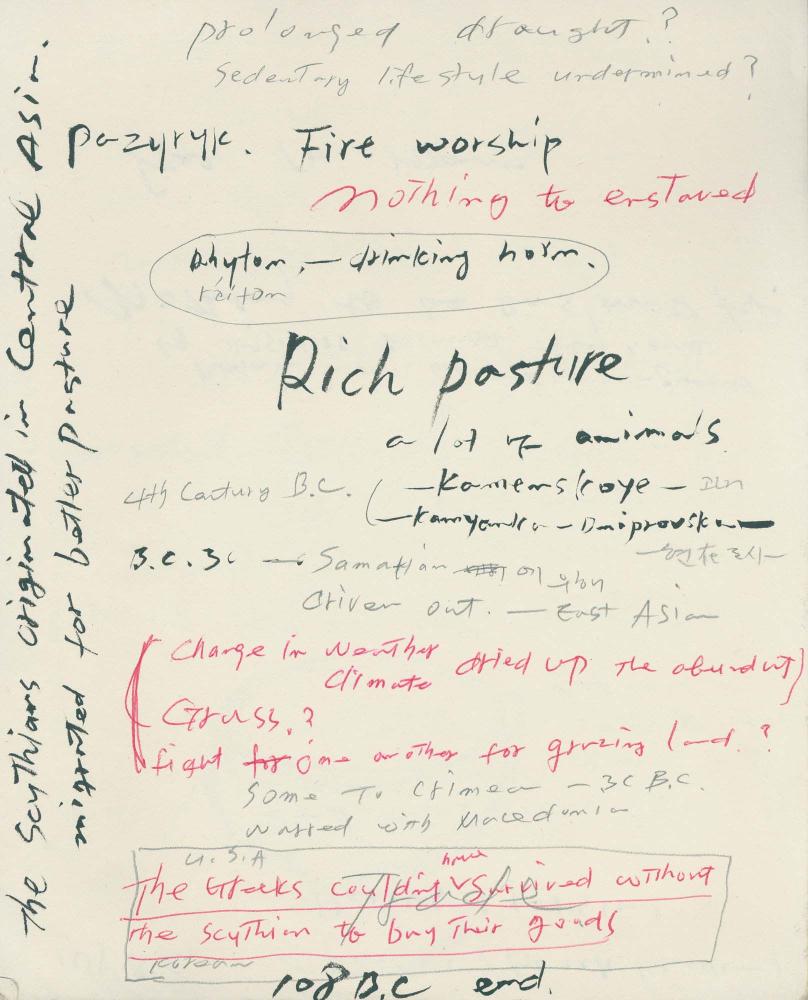 prolonged draught?
Sedentary lifestyle undermined?
pazyryk. Fire worship
nothing to enstaved
Rhyton, — drinking horn.
réiton
Rich pasture
a lot of animals
4th Century B.C. ( — Kamenskoye —
— Kamyanka — Dniprovska —
— 현재 도시 —
B.C. 3C — Samatian 에 위해
driven out. — East Asian
Change in weather
Climate dried up the abundant)
Grass.?
fight for one another for grazing land.?
Some to Crimea — 3C B.C.
warred with Macedonia
U.S.A
The Greeks couldn't have survived without
Trade
the Scythian to buy their goods
Korean
108 B.C end.
The Scythians originated in Central Asia.
migrated for better pasture